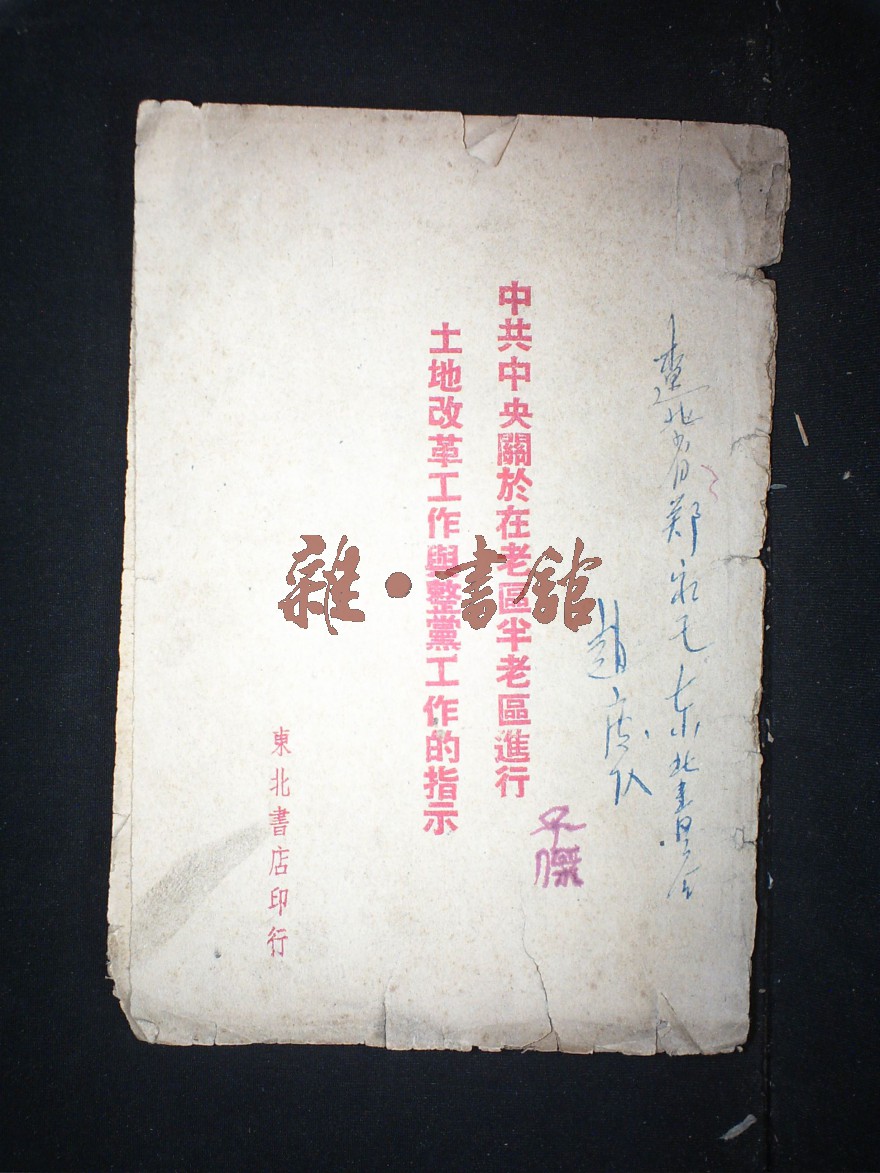 遼北省郑家屯东北書店
中共中央關於在老區半老區進行
土地改革工作與整黨工作的指示
東北書店印行
雜·書舘